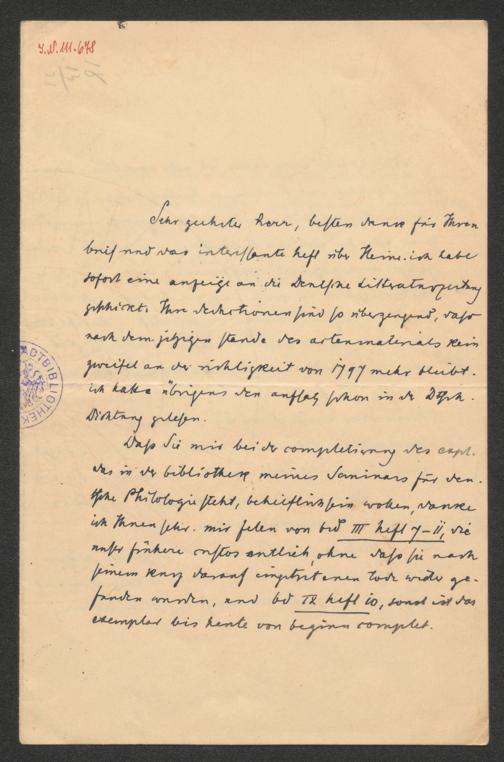 I.N. 111.678
Sehr geehrter herr, besten dank für Ihren
brief und das interessante heft über Heine. ich habe
sofort eine anzeige an die Deutsche Litteraturzeitung
geschickt. Ihre deductionen sind so überzeugend, dass
nach dem jetzigen stande des actenmaterials kein
zweifel an der richtigkeit von 1797 mehr bleibt.
ich hatte übrigens den aufsatz schon in der Dtsch.
Dichtung gelesen.
Daß Sie mir bei der completierung des expl.
das in der bibliothek meines Seminars für deu-
tsche Philologie steht, behilflich sein wollen, danke
ich Ihnen sehr. mir felen von bd III heft 7–11, die
unser früherer custos entlieh, ohne daß sie nach
seinem kurz darauf eingetretenen tode wider ge-
funden wurden, und bd IX heft 10, sonst ist das
exemplar bis heute von beginn complet.
STADTBIBLIOTHEK